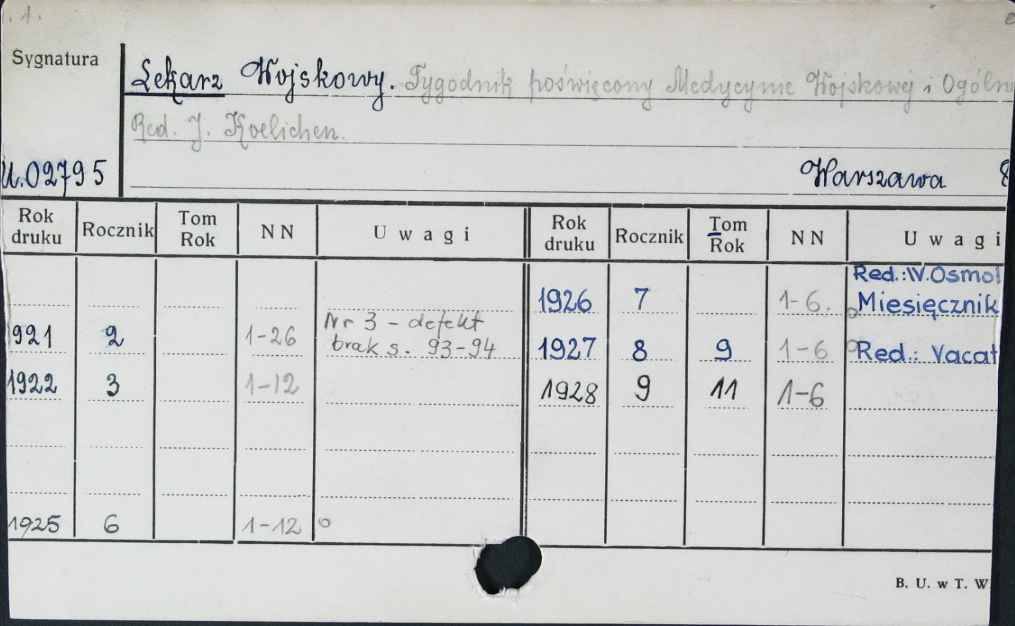 . 1.
Sygnatura
Lekarz Wojskowy. Tygodnik poświęcony Medycynie Wojskowej i Ogóln
Red. J. Koelichen.
U.02795
Warszawa 8
Rok druku Rocznik Tom Rok NN Uwagi Rok druku Rocznik Tom Rok NN Uwagi
Red.: W. Osmol
1926 7 1-6. Miesięcznik
1921 2 1-26 Nr 3 - defekt
brak s. 93-94
1927 8 9 1-6 Red.: Vacat
1922 3 1-12
1928 9 11 1-6
1925 6 1-12
B. U. w T. W.